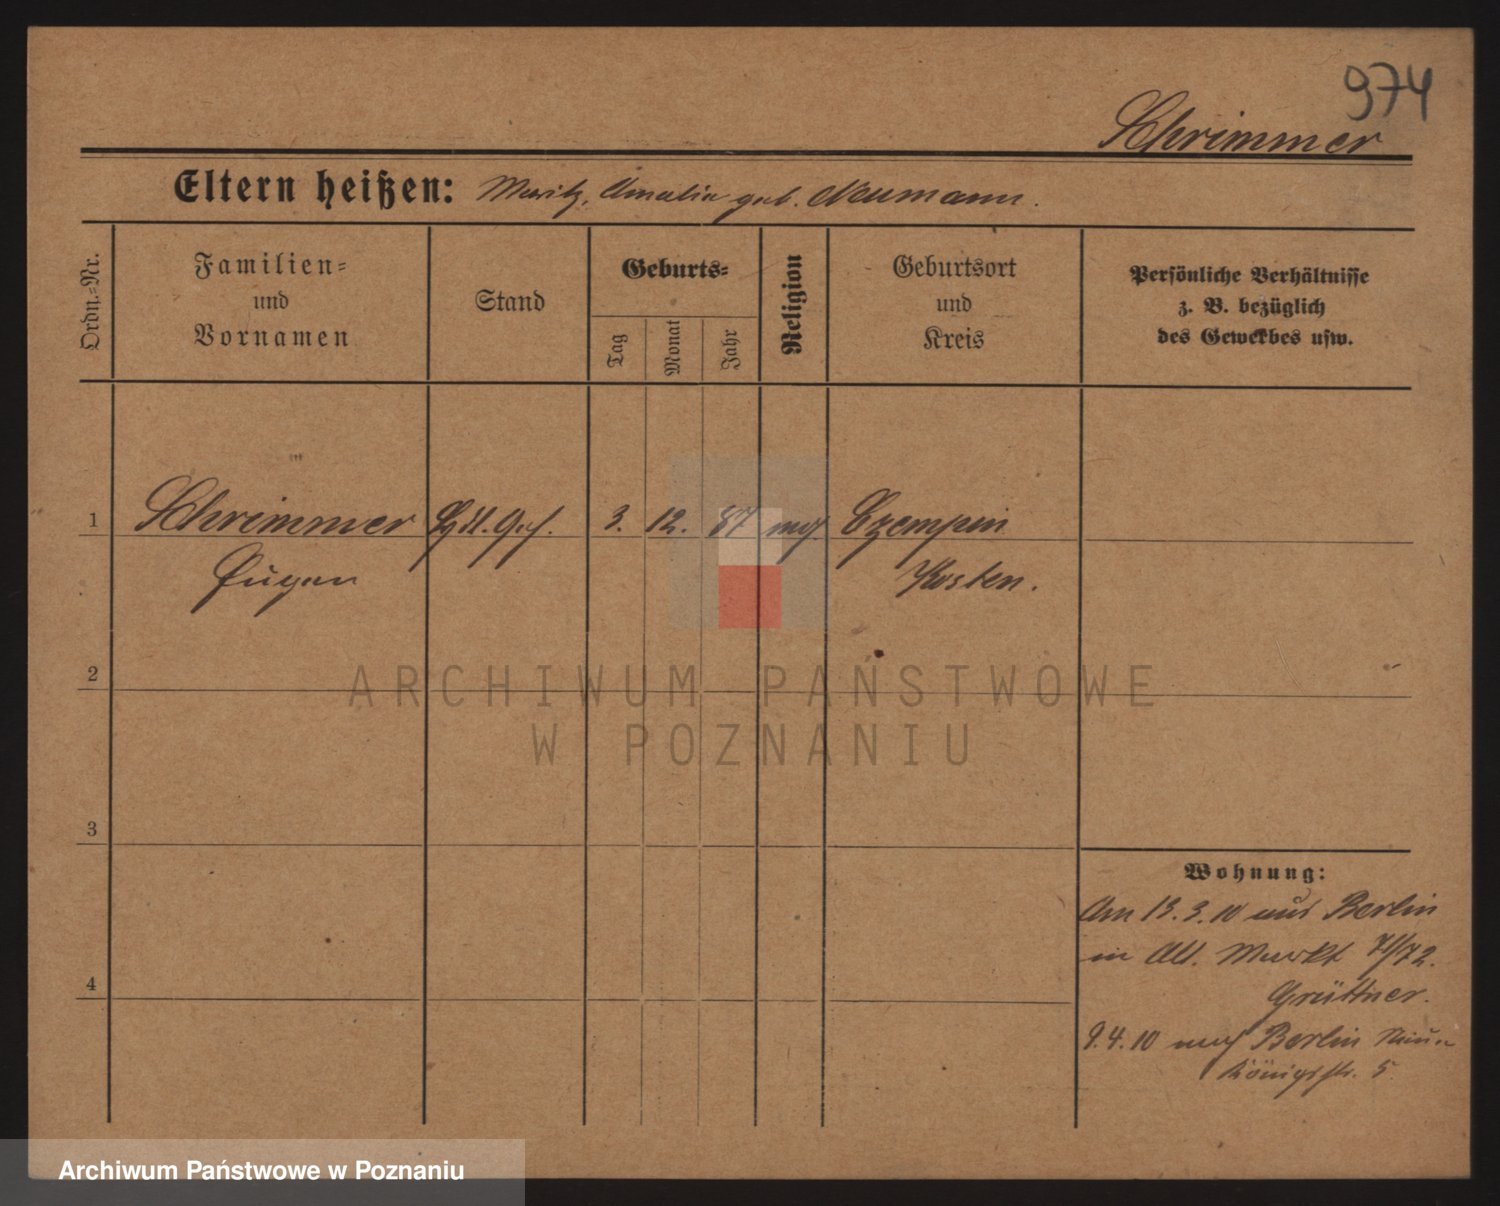 974
Schrimmer
Eltern heißen: Moritz, Amalie geb. Neumann.
Ordn.-Nr.
Familien-
und
Vornamen
Stand
Geburts-
Tag
Monat
Jahr
Religion
Geburtsort
und
Kreis
Persönliche Verhältnisse
z. B. bezüglich
des Gewerbes usw.
1 Schrimmer 3. 12. 87 mos. Czempin
Eugen Kosten.
2
3
4
Wohnung:
Am 13.3.10 aus Berlin
in Alt. Markt 71/72.
Grüttner.
9.4.10 nach Berlin Neue
Königsstr. 5
ARCHIWUM PAŃSTWOWE
W POZNANIU
Archiwum Państwowe w Poznaniu